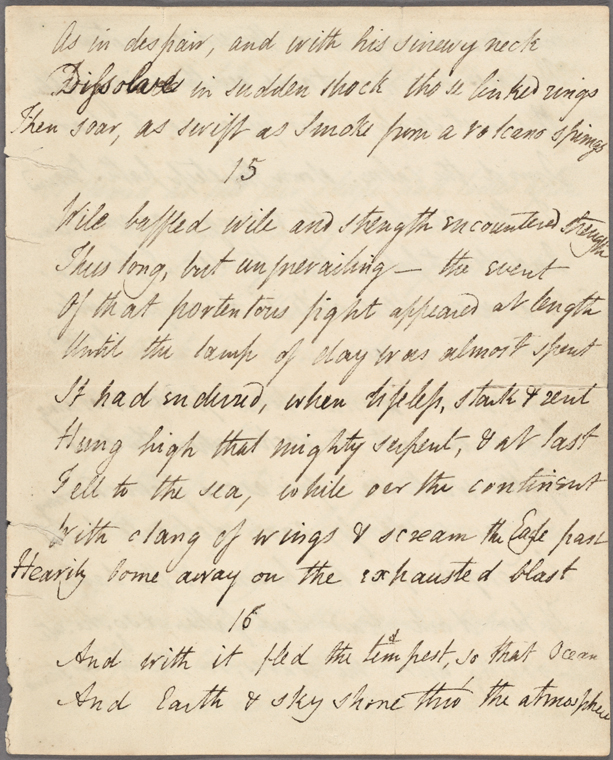 As in despair, and with his sinewy neck
Dissolve in sudden shock those linked rings
Then soar, as swift as smoke from a volcano springs
15
Wile baffled wile and strength encountered strength
Thus long, but unprevailing — the event
Of that portentous fight appeared at length
Until the lamp of day was almost spent
It had endured, when lifeless, stark & rent
Hung high that mighty serpent, & at last
Fell to the sea, while oer the continent
With clang of wings & scream the Eagle past
Heavily borne away on the exhausted blast
16
And with it fled the tempest, so that Ocean
And Earth & sky shone thro' the atmosphere